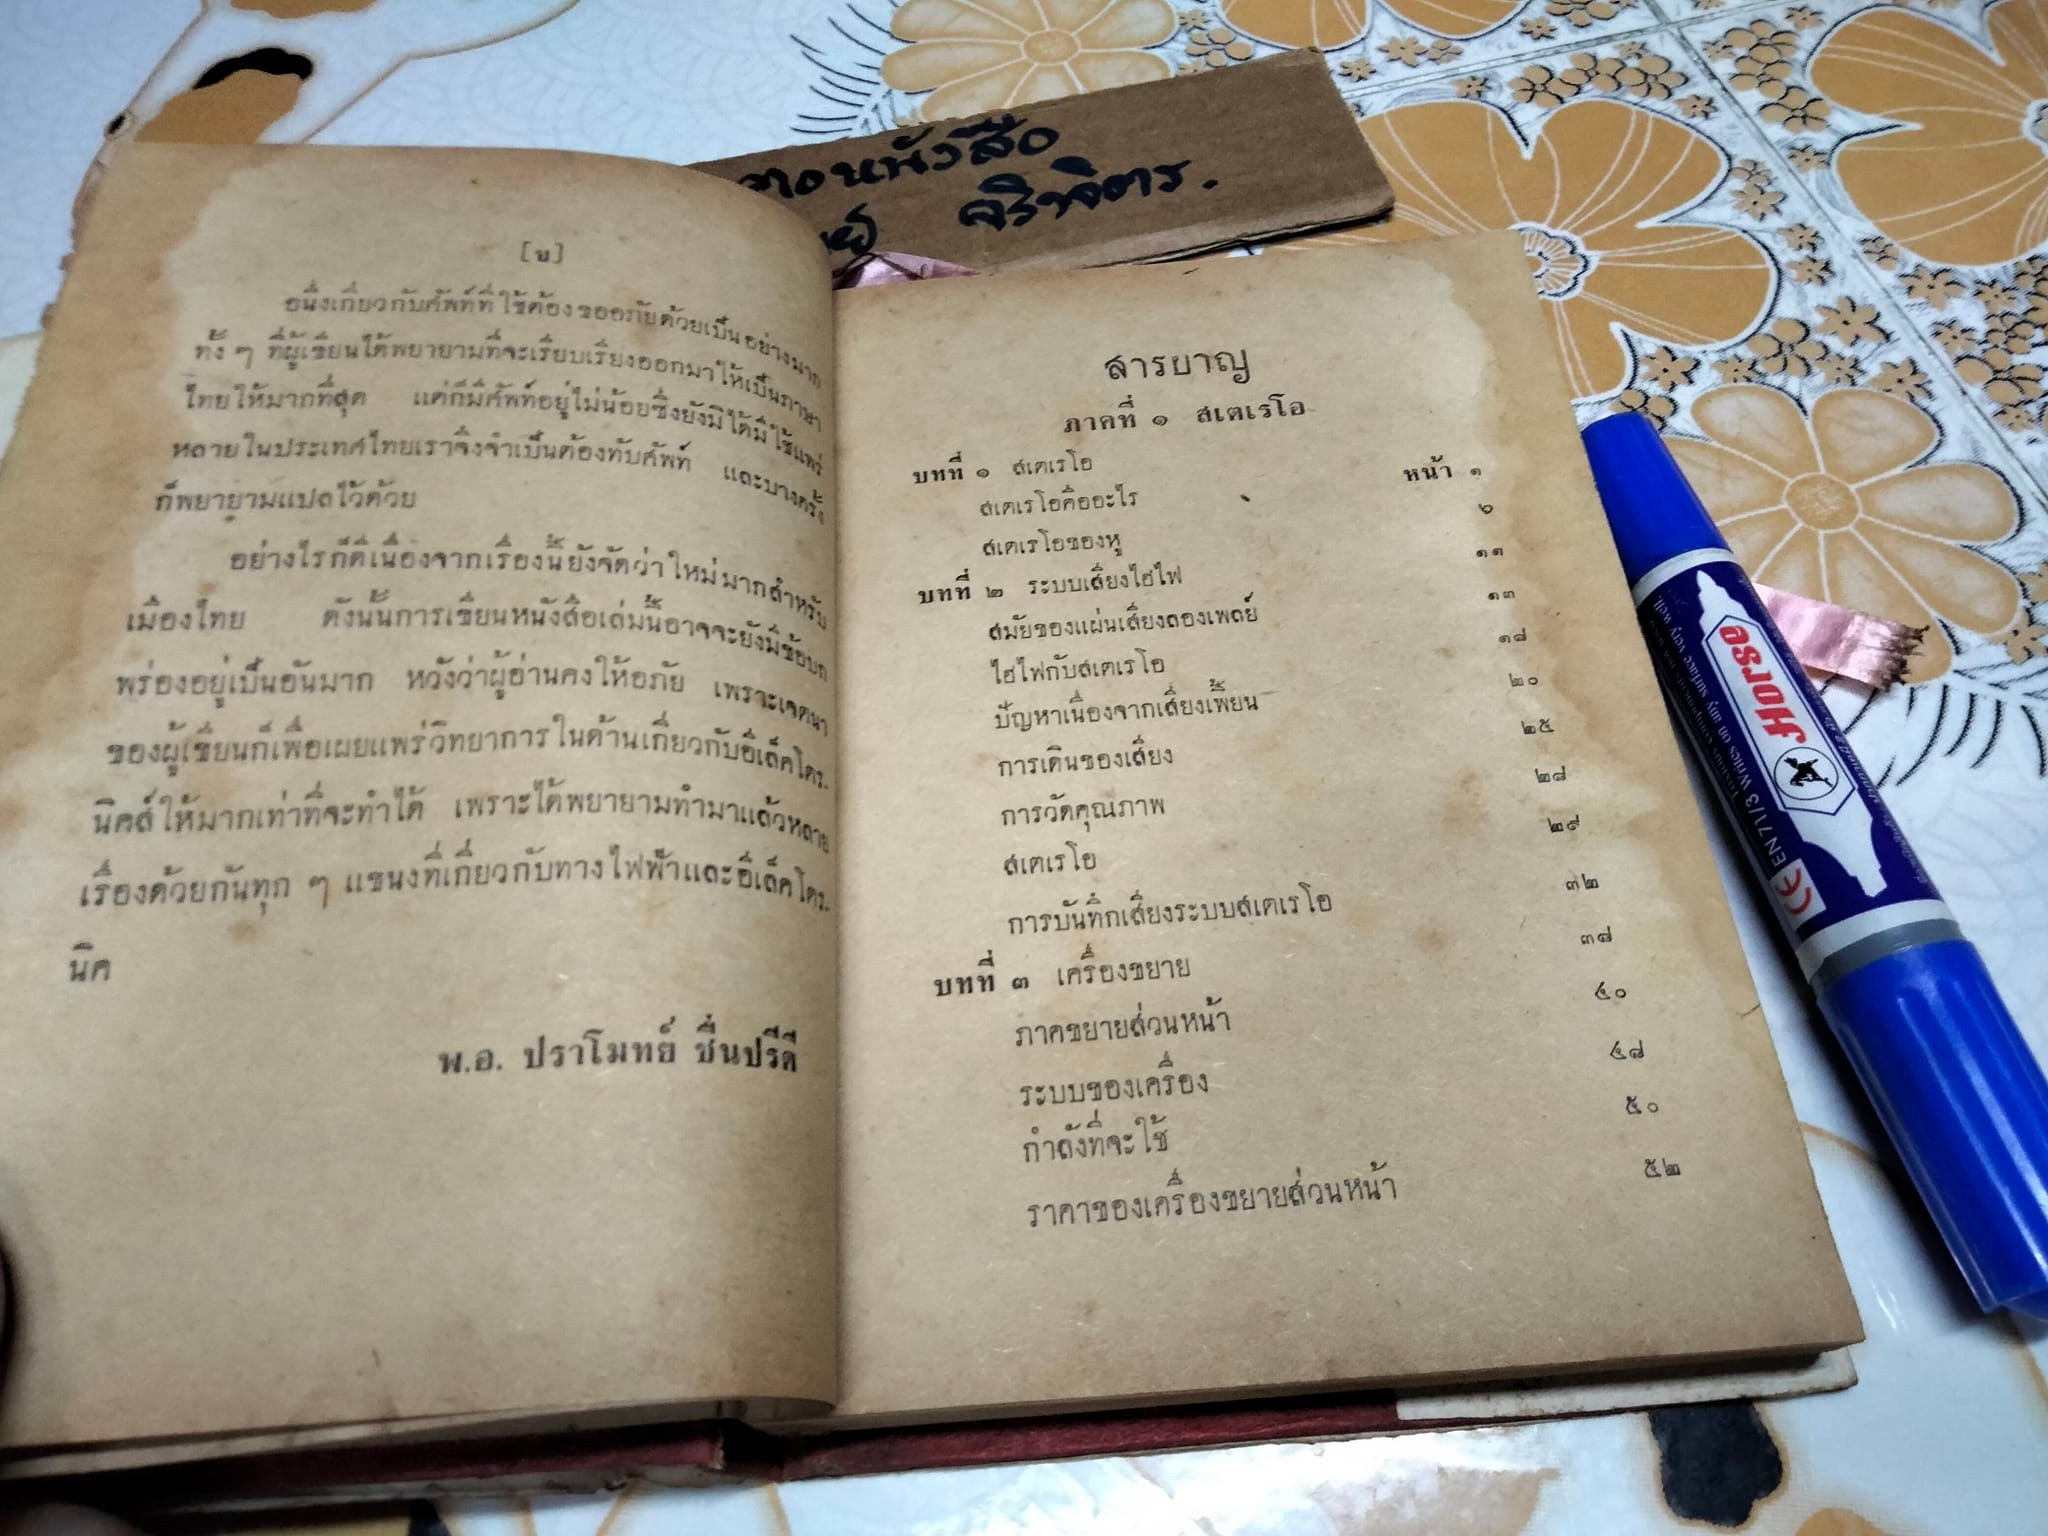 [ข]
อนึ่งเกี่ยวกับศัพท์ที่ใช้ต้องขออภัยด้วยเป็นอย่างมาก
ทั้ง ๆ ที่ผู้เขียนได้พยายามที่จะเรียบเรียงออกมาให้เป็นภาษา
ไทยให้มากที่สุด แต่ก็มีศัพท์อยู่ไม่น้อยซึ่งยังมิได้มีใช้แพร่
หลายในประเทศไทยเราจึงจำเป็นต้องทับศัพท์ และบางครั้ง
ก็พยายามแปลไว้ด้วย
อย่างไรก็ดีเนื่องจากเรื่องนี้ยังจัดว่าใหม่มากสำหรับ
เมืองไทย ดังนั้นการเขียนหนังสือเล่มนี้อาจจะยังมีข้อบก
พร่องอยู่เป็นอันมาก หวังว่าผู้อ่านคงให้อภัย เพราะเจตนา
ของผู้เขียนก็เพื่อเผยแพร่วิทยาการในด้านเกี่ยวกับอีเล็คโตร-
นิคส์ให้มากเท่าที่จะทำได้ เพราะได้พยายามทำมาแล้วหลาย
เรื่องด้วยกันทุก ๆ แขนงที่เกี่ยวกับทางไฟฟ้าและอีเล็คโตร-
นิค
พ.อ. ปราโมทย์ ชื่นปรีดี
สารบาญ
ภาคที่ ๑ สเตเรโอ
บทที่ ๑ สเตเรโอ หน้า ๑
สเตเรโอคืออะไร ๖
สเตเรโอของหู ๑๑
บทที่ ๒ ระบบเสียงไฮไฟ ๑๓
สมัยของแผ่นเสียงลองเพลย์ ๑๘
ไฮไฟกับสเตเรโอ ๒๐
ปัญหาเนื่องจากเสียงเพี้ยน ๒๕
การเดินของเสียง ๒๘
การวัดคุณภาพ ๒๙
สเตเรโอ ๓๒
การบันทึกเสียงระบบสเตเรโอ ๓๘
บทที่ ๓ เครื่องขยาย ๔๐
ภาคขยายส่วนหน้า ๔๘
ระบบของเครื่อง ๕๐
กำลังที่จะใช้ ๕๒
ราคาของเครื่องขยายส่วนหน้า
หนังสือ
จริจิตร.
Horse
EN71/3 Writes on any surface very well.
CE